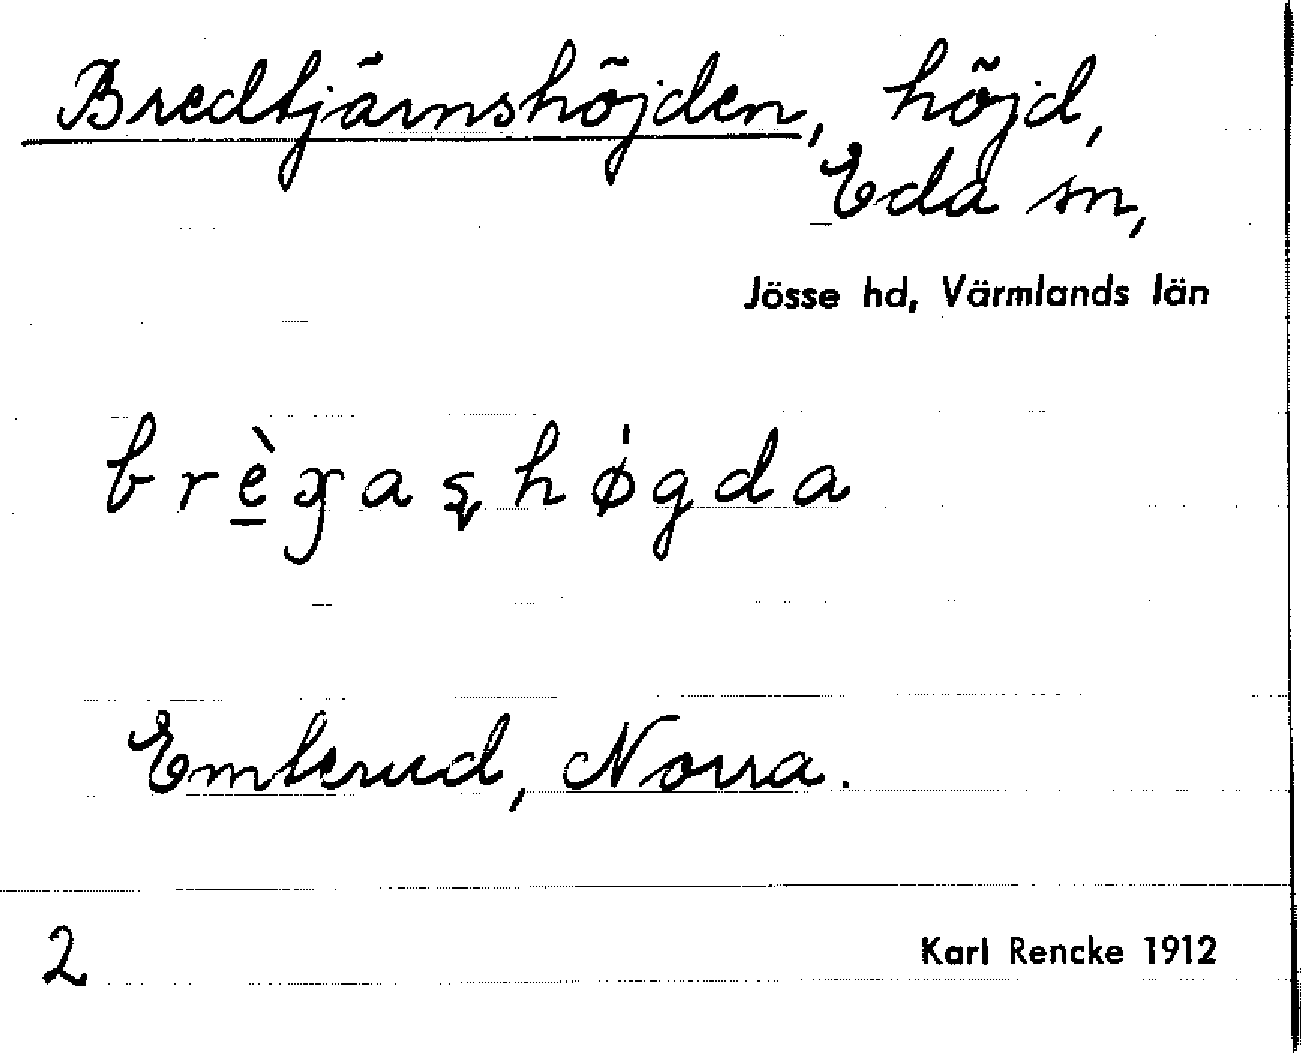 Bredtjärnshöjden, höjd,
Eda sn,
Jösse hd, Värmlands län
Emterud, Norra.
2
Karl Rencke 1912